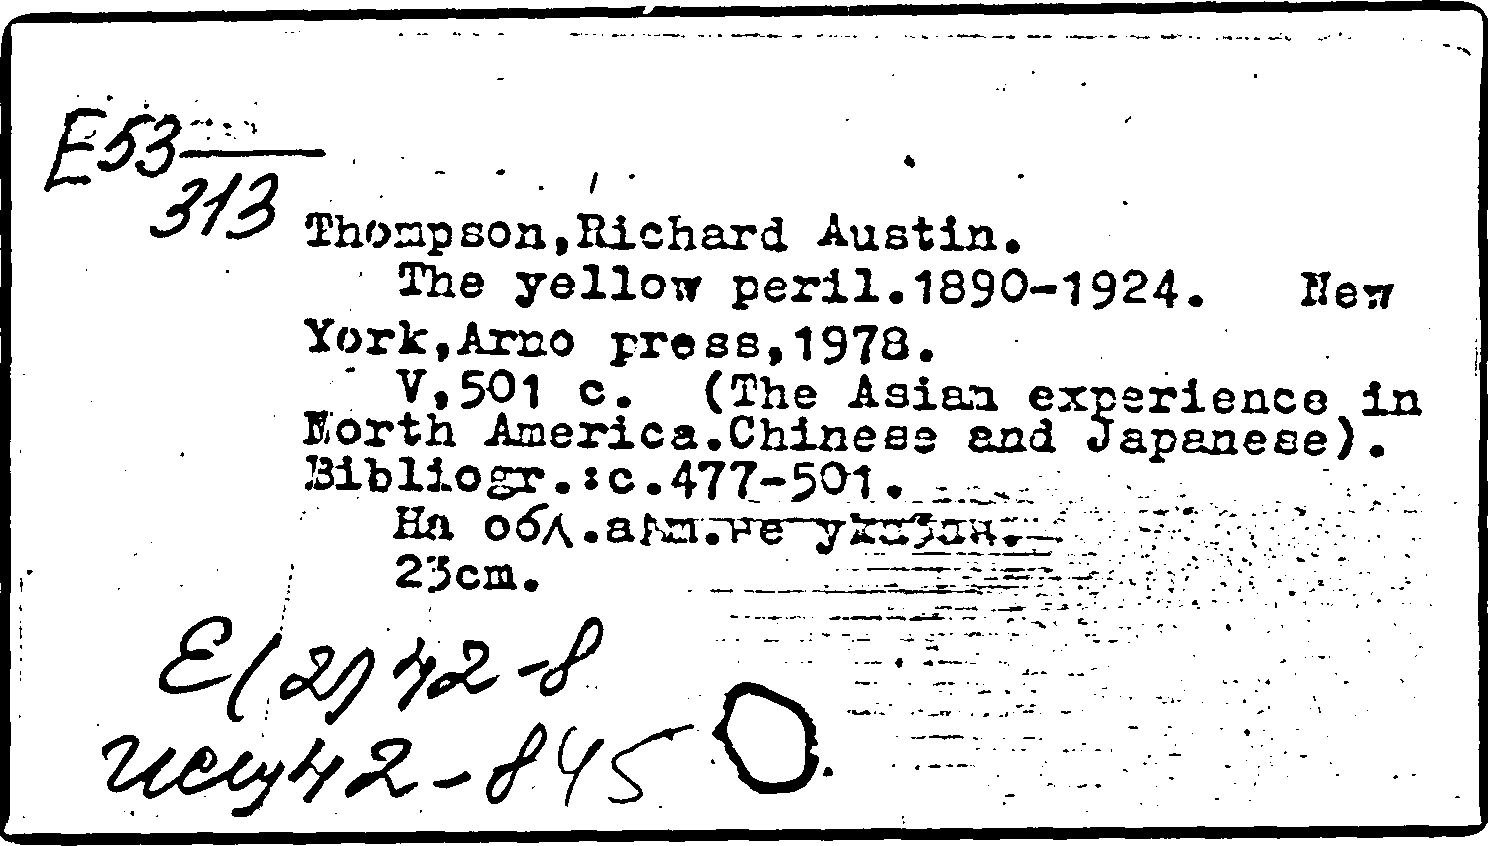 E53
313
Thompson,Richard Austin.
The yellow peril.1890-1924. New
York,Arno press,1978.
V,501 c. (The Asian experience in
North America.Chinese and Japanese).
Bibliogr.:c.477-501.
На обл.авт.не указан.
23cm.
E(2)42-8
42-845